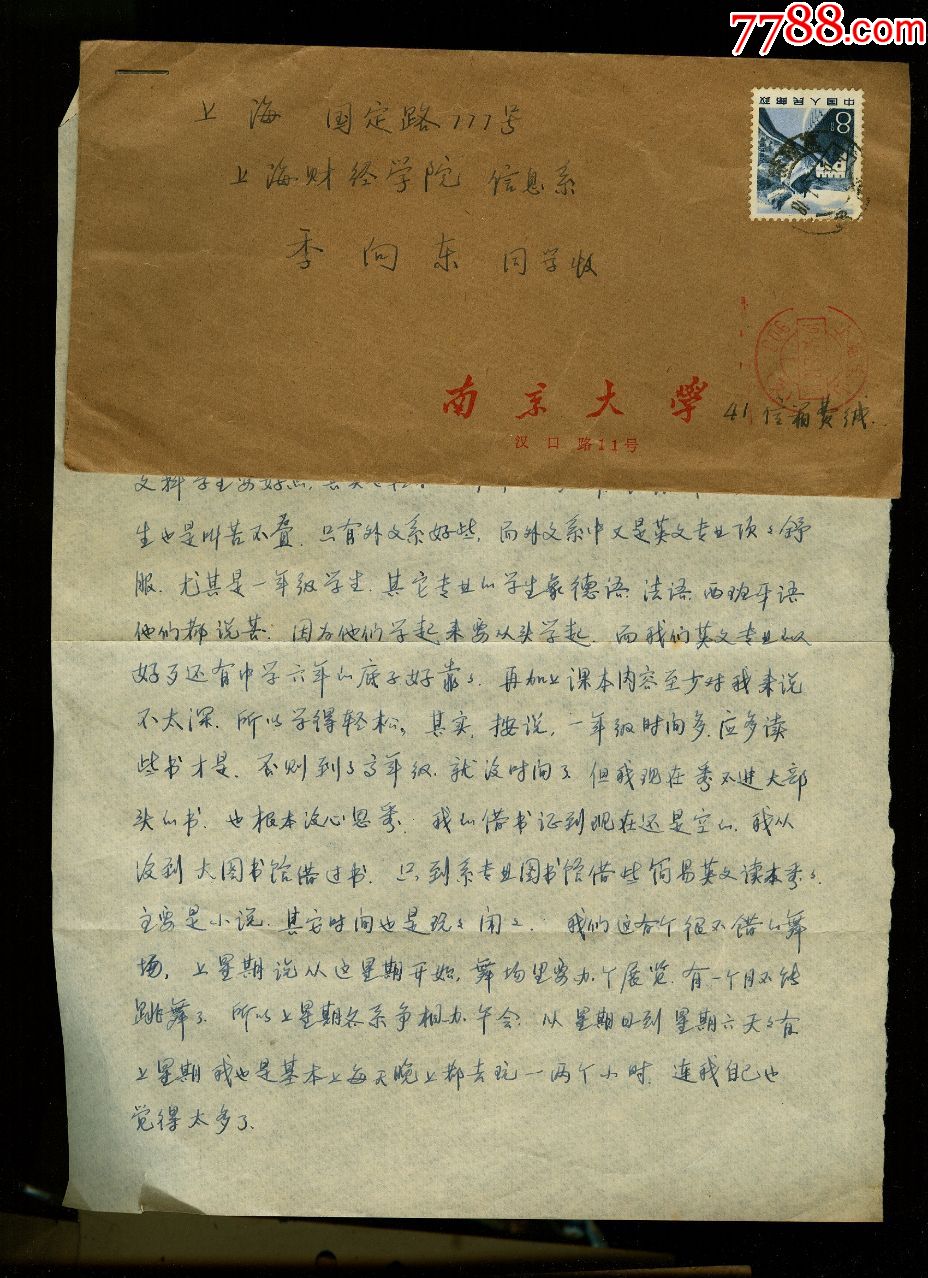 7788.com
中国人民邮政
8
上海 国定路777号
上海财经学院 信息系
季向东 同学收
南京大学 41信箱费缄.
汉口路11号
文科学生要好些,
生也是叫苦不叠. 只有外文系好些, 而外文系中又是英文专业顶々舒
服. 尤其是一年级学生. 其它专业的学生象德语. 法语. 西班牙语
他们都说苦. 因为他们学起来要从头学起. 而我们英文专业
好歹还有中学六年的底子好靠々. 再加上课本内容至少对我来说
不太深. 所以学得轻松。其实, 按说, 一年级时间多. 应多读
些书才是. 否则到了高年级, 就没时间了. 但我现在看不进大部
头的书. 也根本没心思看. 我的借书证到现在还是空的. 我从
没到大图书馆借过书. 只到系专业图书馆借些简易英文读本看々.
主要是小说. 其它时间也是玩々闹々. 我们这有个很不错的舞
场, 上星期说从这星期开始, 舞场里要办个展览. 有一个月不能
跳舞了. 所以上星期各系争相办午会. 从星期日到星期六天々有
上星期我也是基本上每天晚上都去玩一两个小时. 连我自己也
觉得太多了.